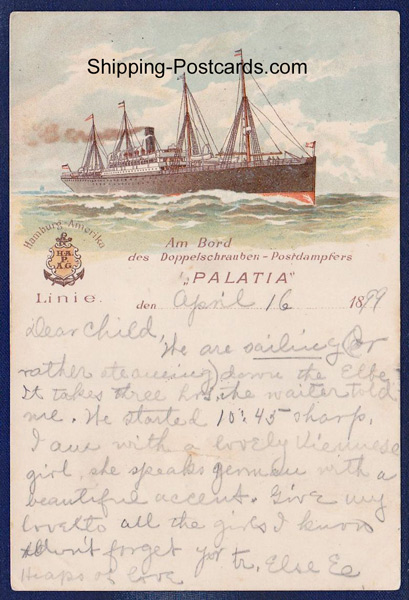 Shipping-Postcards.com
Hamburg-Amerika
H.A.
P.A.G.
Linie.
Am Bord
des Doppelschrauben-Postdampfers
„PALATIA"
den April 16 1899
Dear Child,
We are sailing (or
rather steaming) down the Elbe.
It takes three hrs, the waiter told
me. We started 10.45 sharp.
I am with a lovely Viennese
girl, she speaks german with a
beautiful accent. Give my
love to all the girls I know
don't forget yr tr. Else
Heaps of love